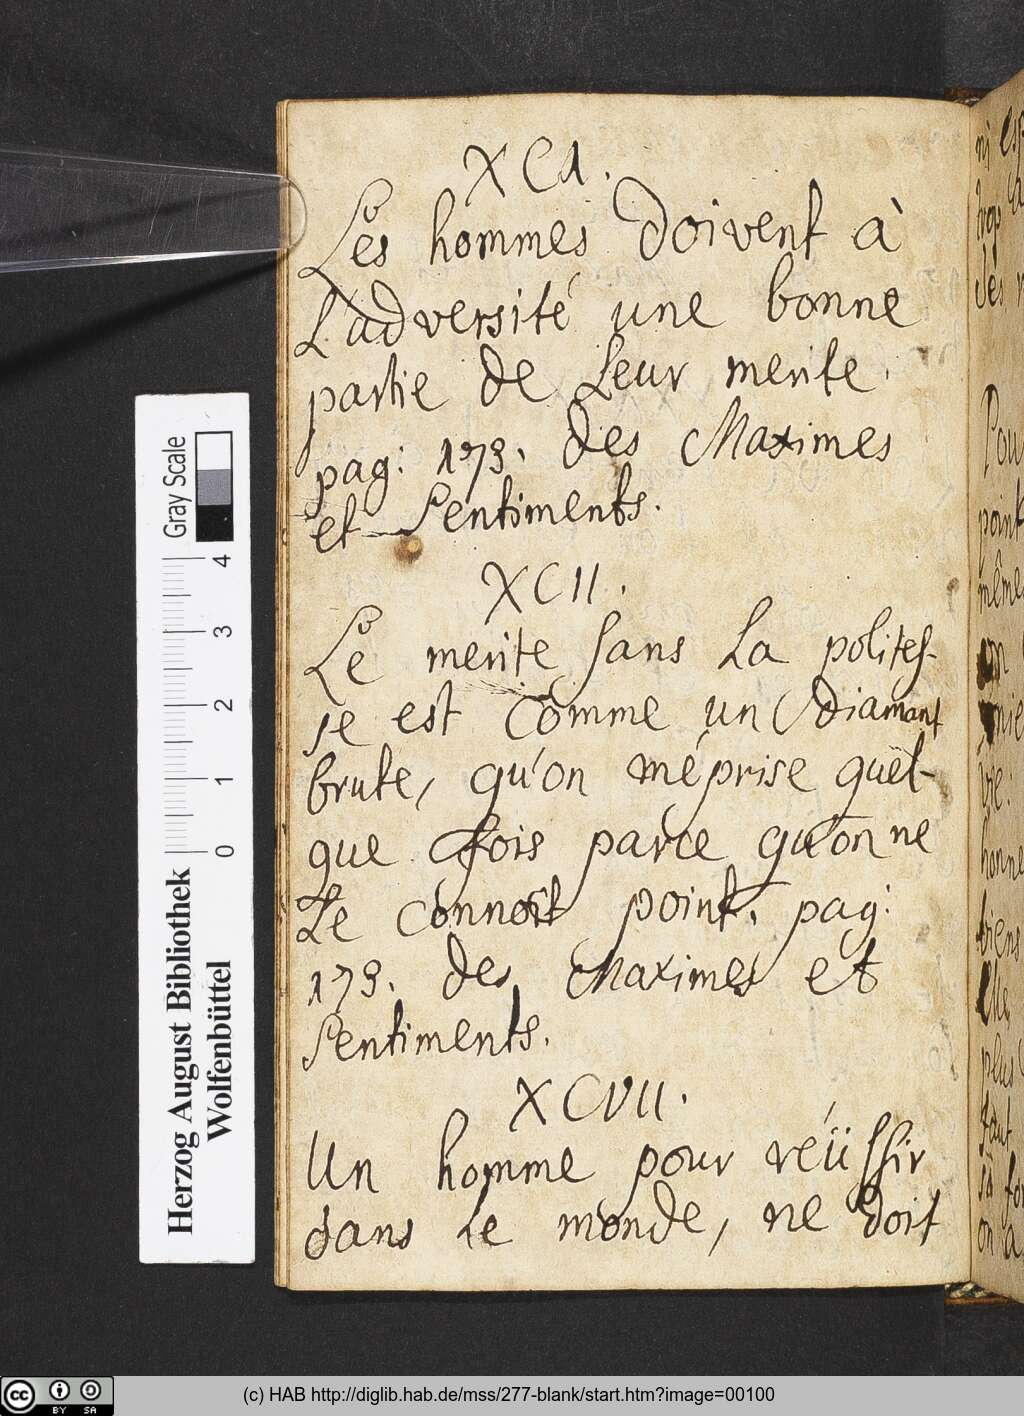 XCI.
Les hommes doivent à
L'adversité une bonne
partie de Leur merite.
pag: 173. des Maximes
et Sentiments.
XCII.
Le merite sans La polites-
se est comme un diamant
brute, qu'on méprise quel-
que fois parce qu'on ne
Le connoît point. pag:
173. des Maximes et
Sentiments.
XCVII.
Un homme pour réüssir
dans Le monde, ne doit
Gray Scale
4
3
2
1
0
Herzog August Bibliothek
Wolfenbüttel
cc BY SA
(c) HAB http://diglib.hab.de/mss/277-blank/start.htm?image=00100